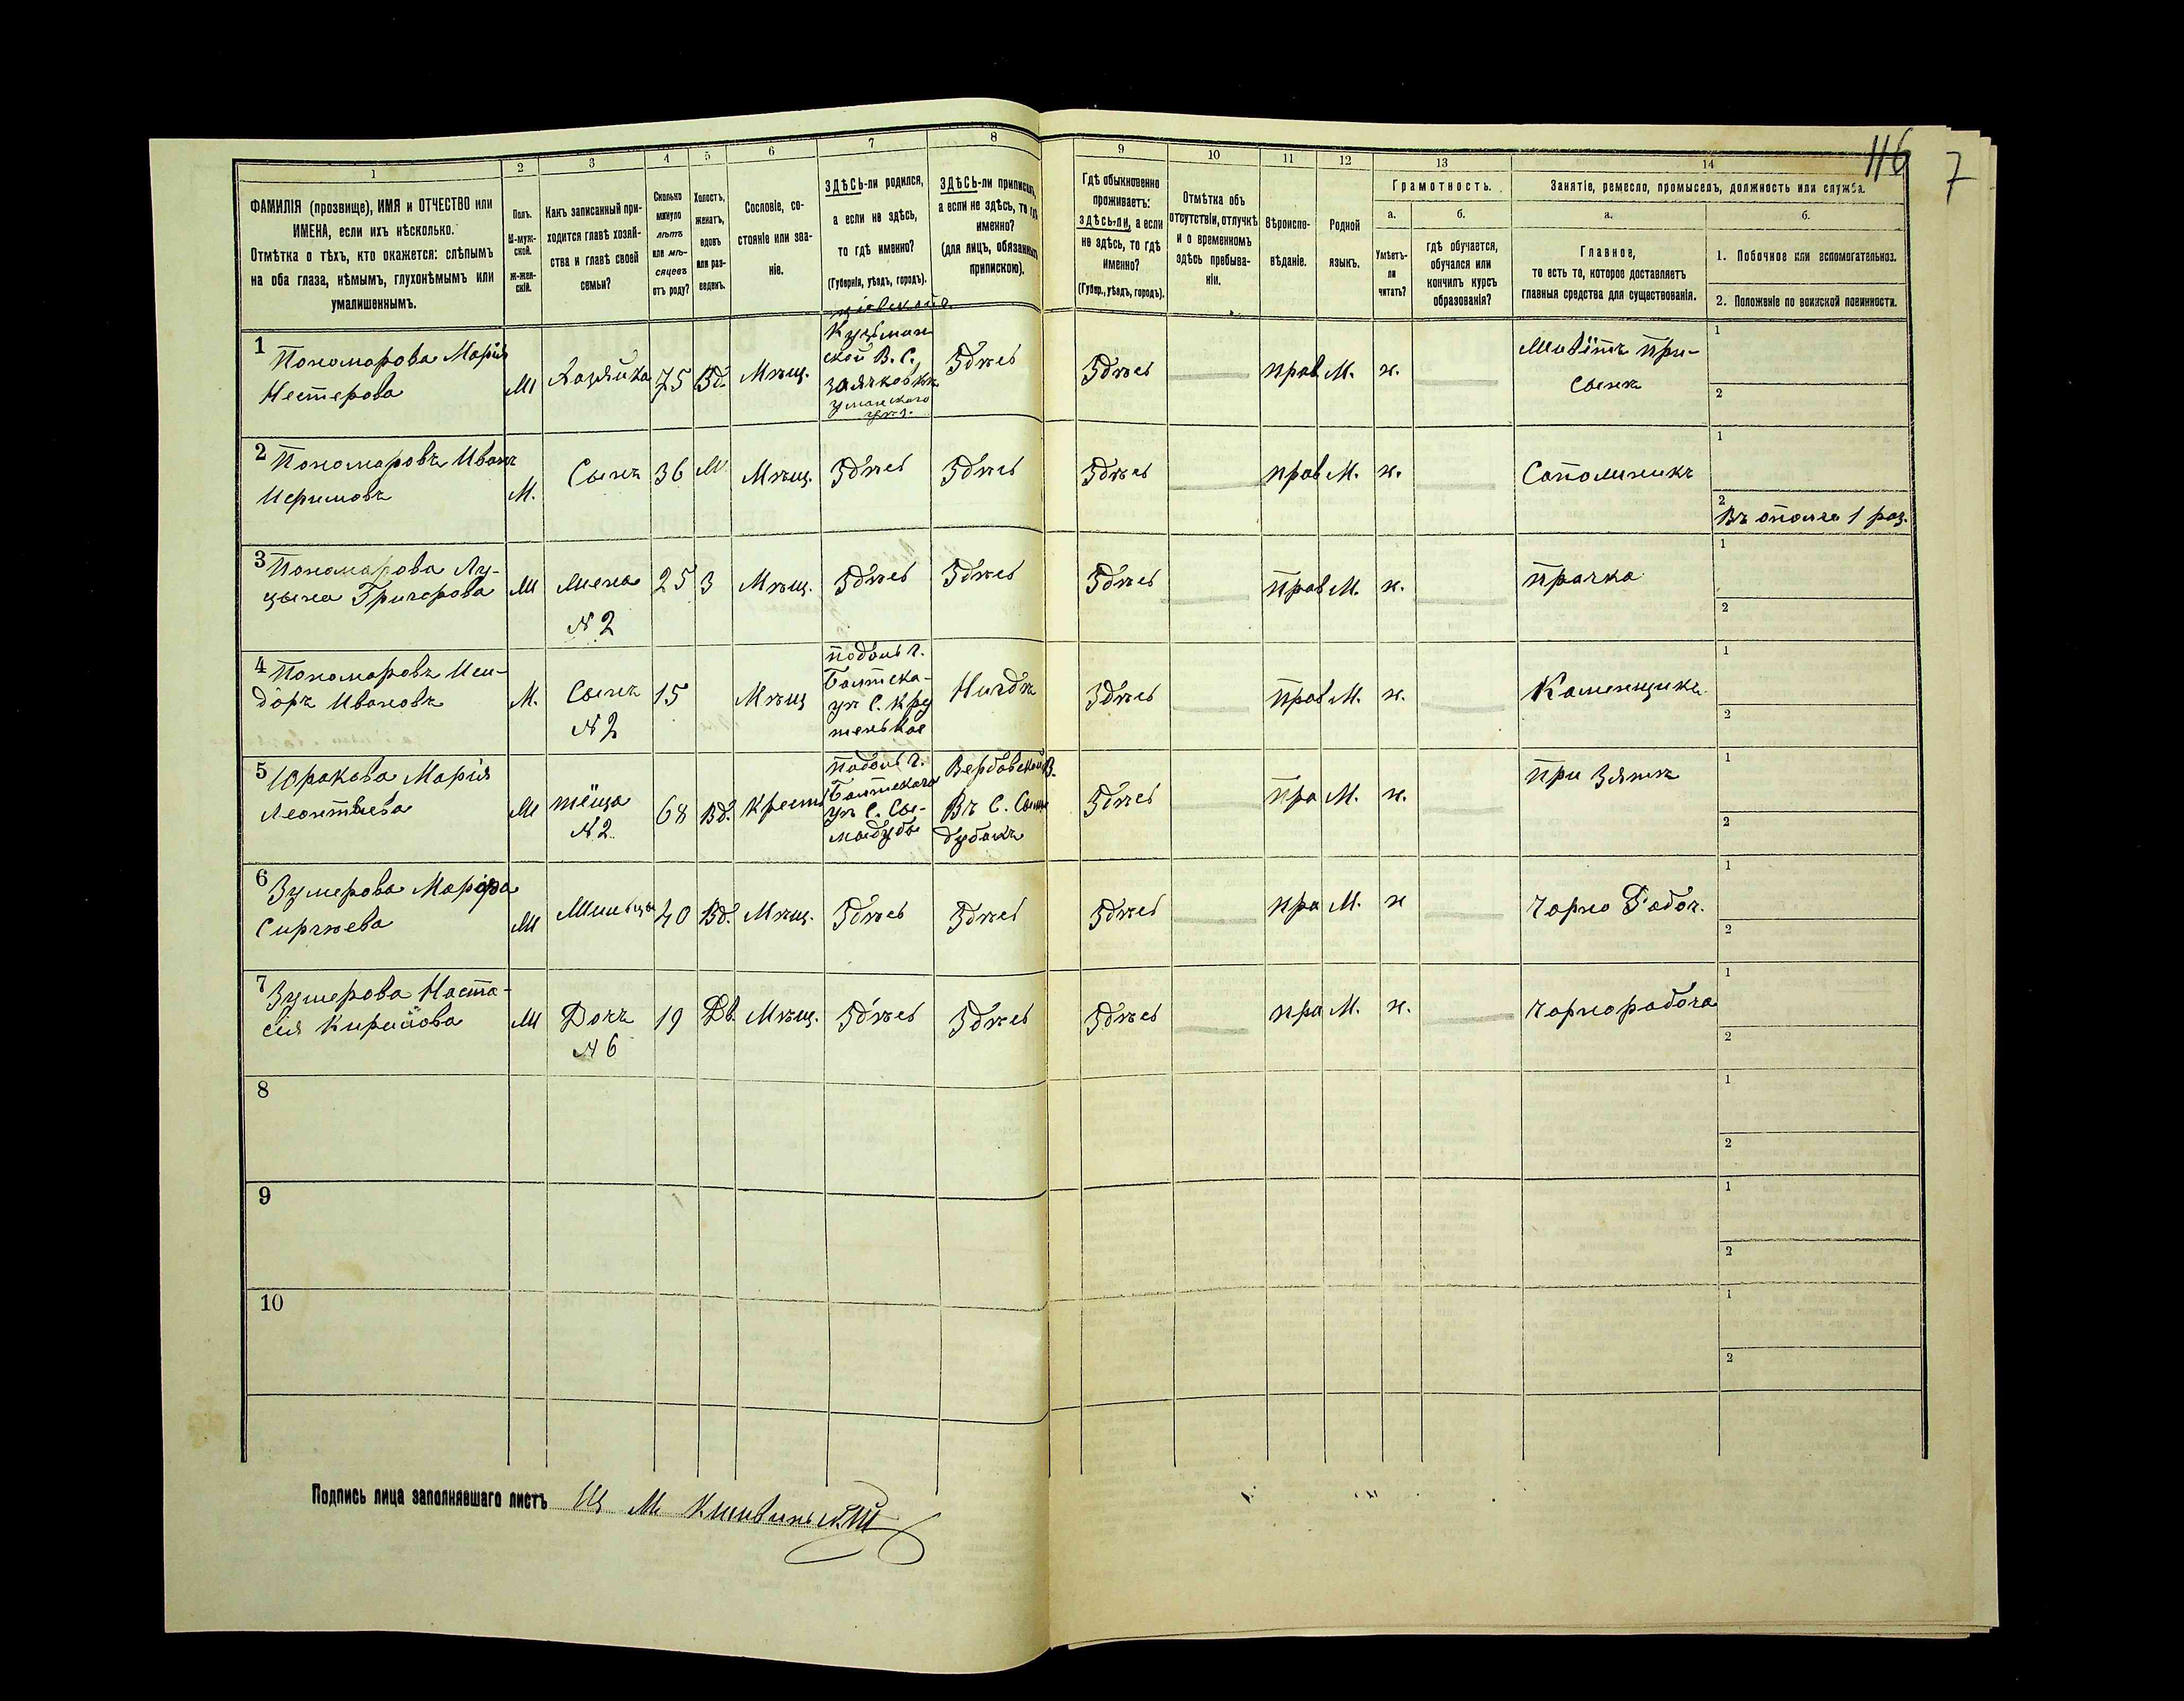 116 7
1 2 3 4 5 6 7 8 9 10 11 12 13 14
ФАМИЛІЯ (прозвище), ИМЯ и ОТЧЕСТВО или
ИМЕНА, если ихъ нѣсколько.
Отмѣтка о тѣхъ, кто окажется: слѣпымъ
на оба глаза, нѣмымъ, глухонѣмымъ или
умалишеннымъ.
Полъ.
М-муж-
ской.
Ж-жен-
скій.
Какъ записанный при-
ходится главѣ хозяй-
ства и главѣ своей
семьи?
Сколько
минуло
лѣтъ
или мѣ-
сяцевъ
отъ роду?
Холостъ,
женатъ,
вдовъ
или раз-
веденъ.
Сословіе, со-
стояніе или зва-
ніе.
ЗДѢСЬ-ли родился,
а если не здѣсь,
то гдѣ именно?
(Губернія, уѣздъ, городъ).
ЗДѢСЬ-ли приписанъ,
а если не здѣсь, то гдѣ
именно?
(для лицъ, обязанныхъ
припискою).
Гдѣ обыкновенно
проживаетъ:
ЗДѢСЬ-ЛИ, а если
не здѣсь, то гдѣ
именно?
(Губер., уѣздъ, городъ).
Отмѣтка объ
отсутствіи, отлучкѣ
и о временномъ
здѣсь пребыва-
ніи.
Вѣроиспо-
вѣданіе.
Родной
языкъ.
Грамотность.
а. б.
Умѣетъ-
ли
читать?
гдѣ обучается,
обучался или
кончилъ курсъ
образованія?
Занятіе, ремесло, промыселъ, должность или служба.
а. б.
Главное,
то есть то, которое доставляетъ
главныя средства для существованія.
1. Побочное или вспомогательное.
2. Положеніе по воинской повинности.
1 Пономарова Марія
Нестерова
Ж Хозяйка 75 Вд. Мѣщ.
Кузьмин
ской В. С.
Заячковкѣ
уманского
уѣз.
Здѣсь Здѣсь прав М. н.
Живётъ при
сынѣ
1
2
2 Пономаровъ Иванъ
М. Сынъ 36 Ж Мѣщ. Здѣсь Здѣсь Здѣсь прав М. н. Сапожникъ
1
2
Въ ополче 1 раз.
3 Пономарова Лу-
Григорова Ж Жена 25 З Мѣщ. Здѣсь Здѣсь Здѣсь прав М. н. прачка
N 2
1
2
4 Пономаровъ
Ивановъ М. Сынъ 15 Мѣщ
N 2
подоль г.
уѣ С. Кру
тенькое
Нигдѣ Здѣсь прав М. н. Каменщикъ
1
2
5 Юракова Марія
Леонтьева
Ж тёща 68 Вд. Крест
N 2
подоль г.
уѣ С.
Вербовской В.
Въ С.
Здѣсь пра М. н. при Зятѣ
1
2
6 Зумерова Марфа
Сиргѣева
Ж Жилица 40 Вд. Мѣщ. Здѣсь Здѣсь Здѣсь пра М. н Чорно Работ.
1
2
7 Зумерова Наста-
сия
Ж Дочъ 19 Дв. Мѣщ. Здѣсь Здѣсь Здѣсь пра М. н. Чорноработа
N 6
1
2
8
1
2
9
1
2
10
1
2
Подпись лица заполнявшаго листъ